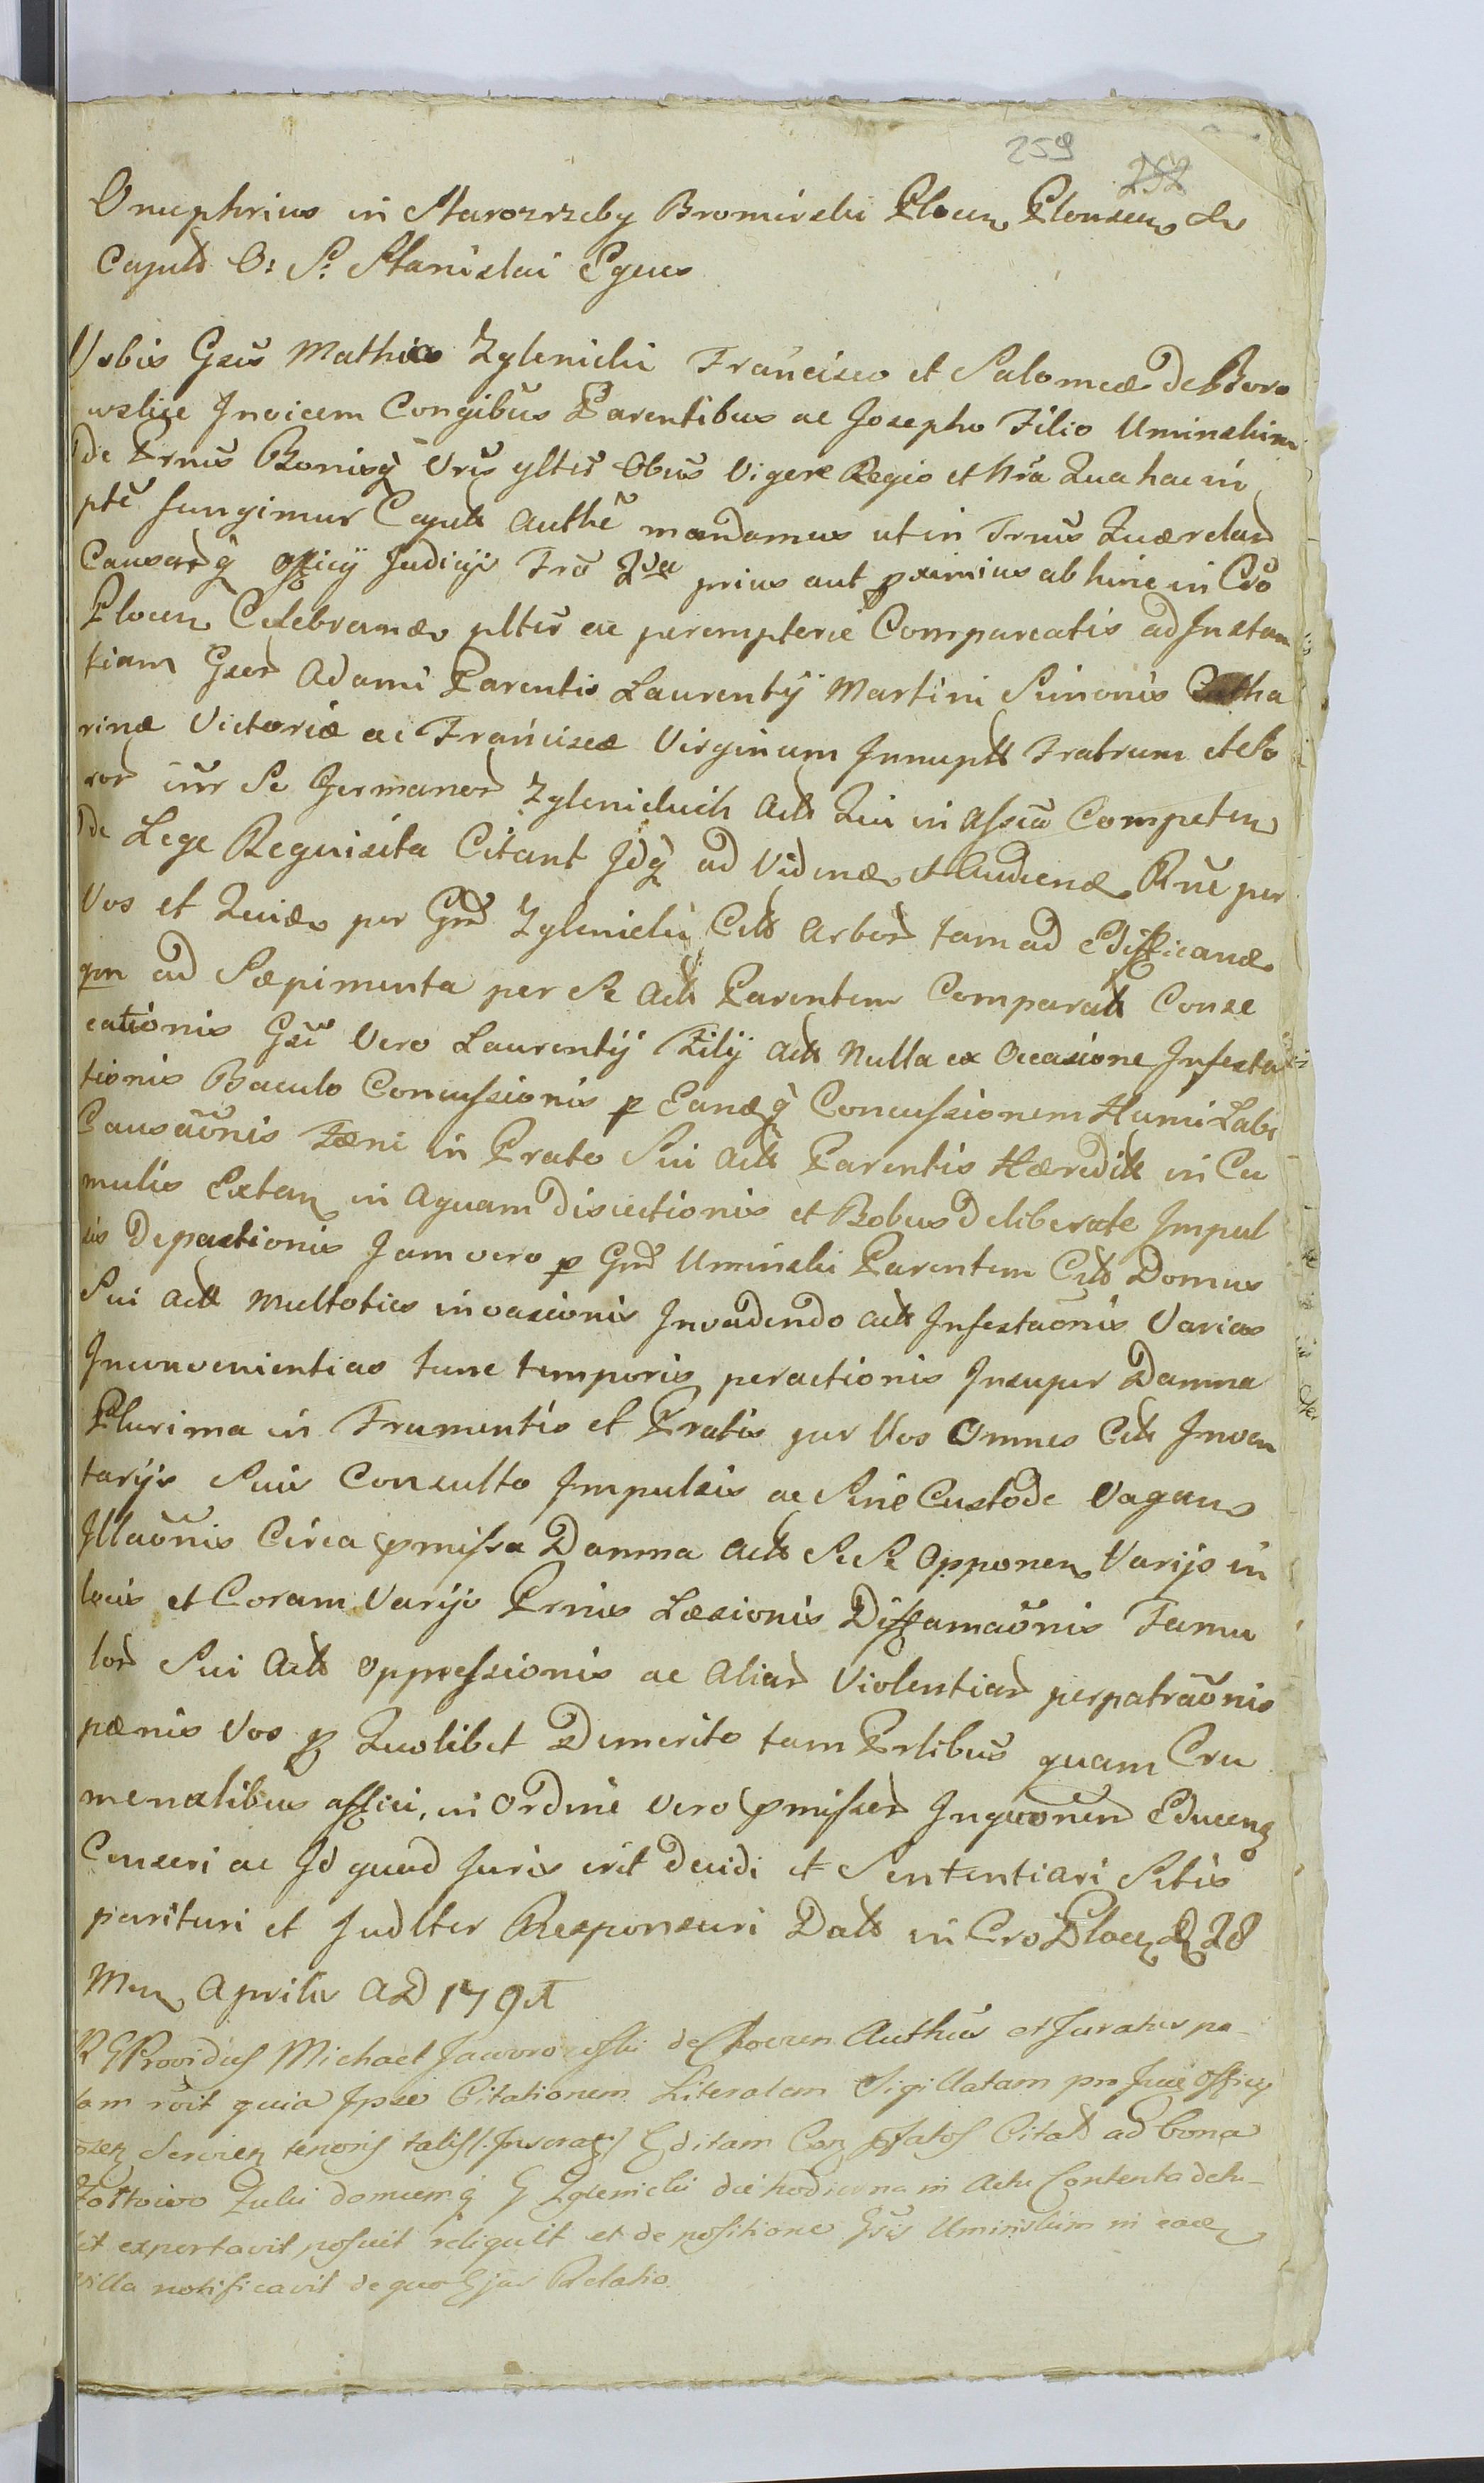 259 252
Onuphrius in Starozrzeby Bromirski Plocen Plonscen &
Capts O: S: Stanislai Eques
Vobis Gsis Mathiæ Zglenicki Francisco et Salomeæ de Boro
wslije Invicem Congibus Parentibus ac Josepho Filio Uminskim
De Prnis Bonisq Vris ylter Obus Vigere Regio et Nra Qua hac in
pte fungimur Captt Authe mandamus ut in Trnis Quærelard
Causard q officij Judicij Tro Qva prius aut pximius ab hinc in Cro
Plocen Celebranæ pltr ac peremptorie Compareatis ad Instan
tiam Gsord Adami Parentis Laurentij Martini Simonis Catha
rinæ Victoriæ ac Franciscæ Virginum Innuptt Fratrum et So
rord intr Se Germanord Zglenickich Actt Qui in Assia Competen
De Lege Requisita Citant Idq ad Videnæ et Audienæ Rne per
Vos et Quiæ per Gnd Zglenicki Citt Arbord tam ad Edifficanæ
qm ad Sæpimenta per Se Actt Parentem Comparatt Conse
cationis Gsi Vero Laurentij Filij Actt Nulla ex Occasione Infesta
tionis Baculo Concussionis p Eanæq Concussionem Humi Labi
Causaõnis Fæni in Prato Sui Actt Parentis Hæreditt in Cu
mulis Extan in Aquam Disiectionis et Bobus Deliberate Impul
sis Depastionis Jam vero p Gnd Uminski Parentem Citt Domus
Sui Actt Multoties invasionis Invadendo Actt Infestaõnis Varias
Inconvenientias tunc temporis peractionis Insuper Damna
Plurima in Frumentis et Pratis per Vos Omnes Citt Inven
tarijs Suis Consulto Impulsis ac Sine Custode Vagan
Illaõnis Circa pmissa Damna Actt Se Se Opponen Varijs in
locis et Coram Varijs Prnis Læsionis Diffamaõnis Famu
lord Sui Actt Oppressionis ac Aliard Violentiard perpatraõnis
pænis Vos p Quolibet Demerito tam Prlibus quam Cru
menalibus affici, in Ordine Vero pmissord Inqwõnem Educeng
Censeri ac Id quod Juris erit Decidi et Sententiari Sitis
parituri et Judlter Responsuri Datt in Cro Plocen D 28
Men Aprilis AD 179
R G Providus Michael Jaworowski de Authus et Juratus pa-
lam rõit quia Ipse Citationem Literalem Sigillatam pn Jure Officij
Servien tenoris talis s. Inserag s Editam Coz pffatos Citatt ad bona
Zulki domumq G Zglenicki die hodierna in Actu Contenta detu-
lit exportavit posuit reliquit et de positione Gsis Uminskim in eadem
villa notificavit de quo Ejus Relatio